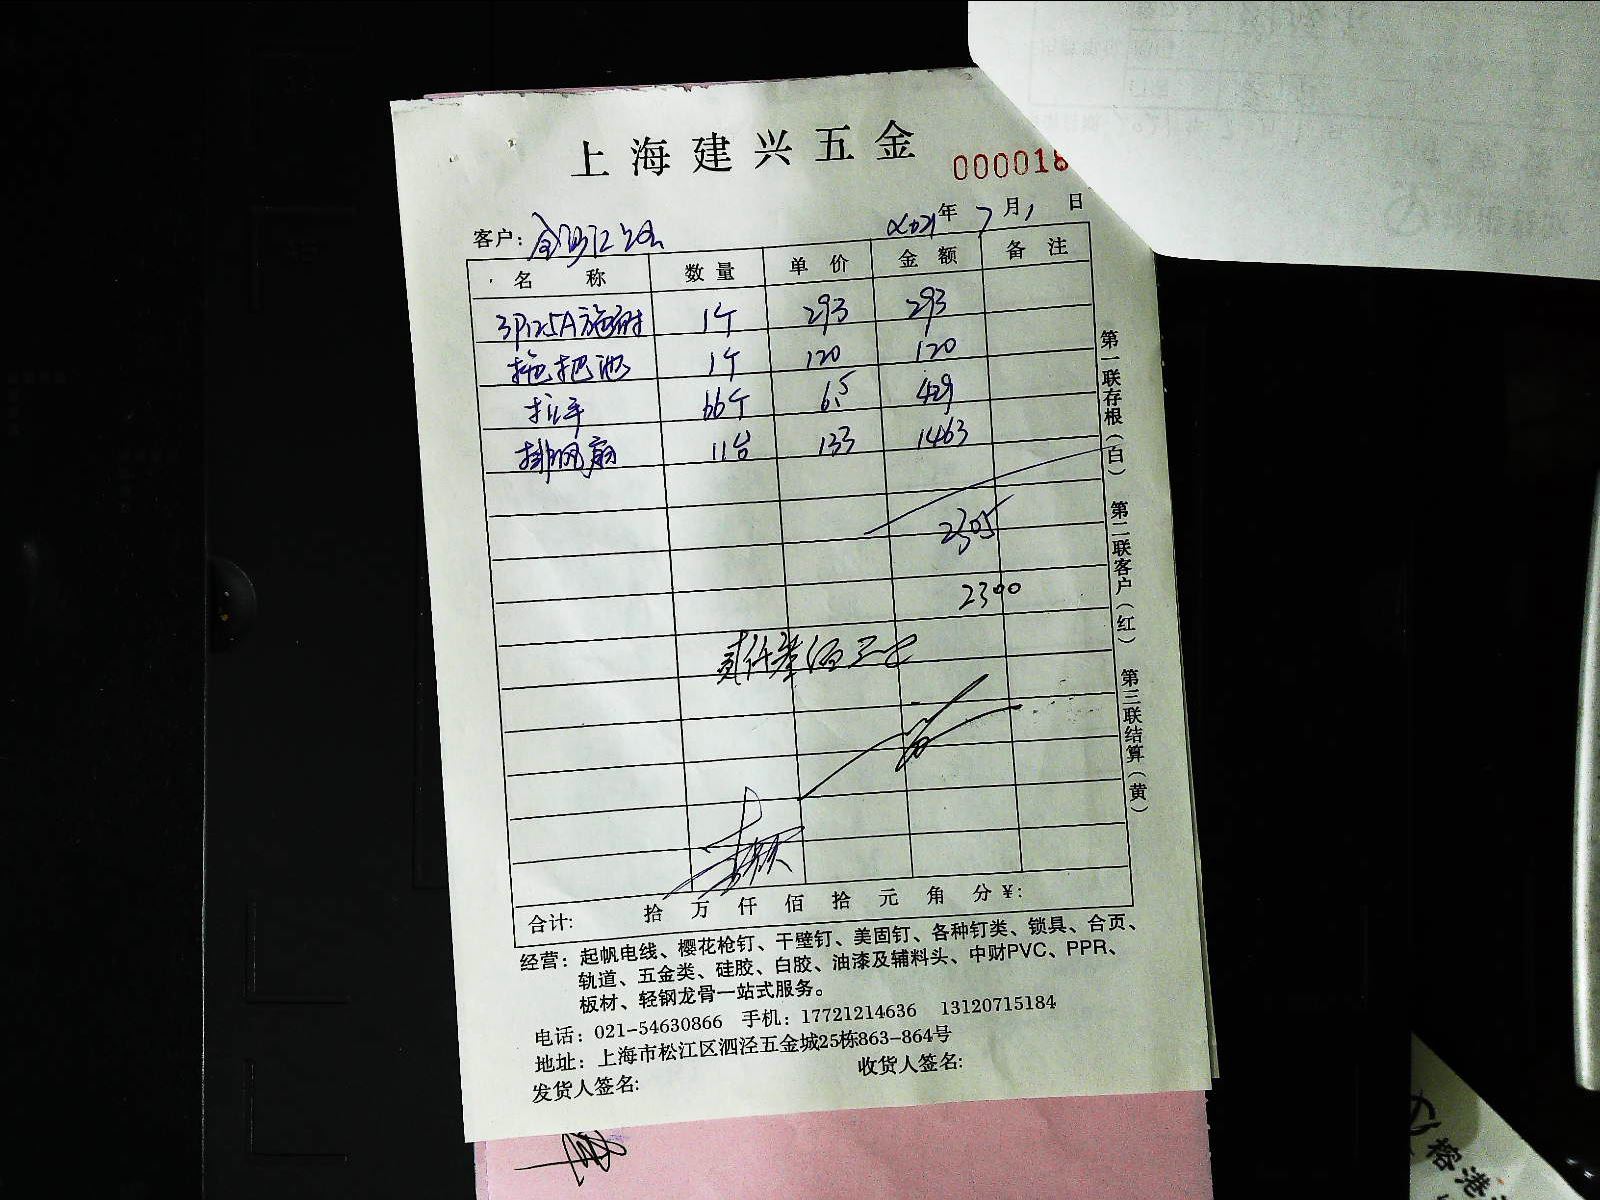 上海建兴五金
000018
客户: 金沙江路 2021年7月1日
名称 数量 单价 金额 备注
3P125A 1个 293 293
拖把池 1个 120 120
拉手 66个 6.5 429
排风扇 11台 133 1463
2305
2300
贰仟叁佰元
合计: 拾 万 仟 佰 拾 元 角 分 ¥:
第一联存根(白) 第二联客户(红) 第三联结算(黄)
经营: 起帆电线、樱花枪钉、干壁钉、美固钉、各种钉类、锁具、合页、
轨道、五金类、硅胶、白胶、油漆及辅料头、中财PVC、PPR、
板材、轻钢龙骨一站式服务。
电话: 021-54630866 手机: 17721214636 13120715184
地址: 上海市松江区泗泾五金城25栋863-864号
发货人签名: 收货人签名:
榕港